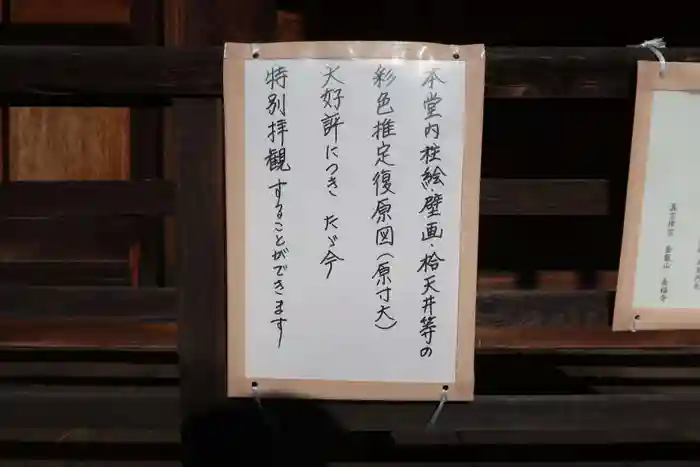 本堂内柱絵・壁画・格天井等の
彩色推定復原図（原寸大）
大好評につき ただ今
特別拝観することができます